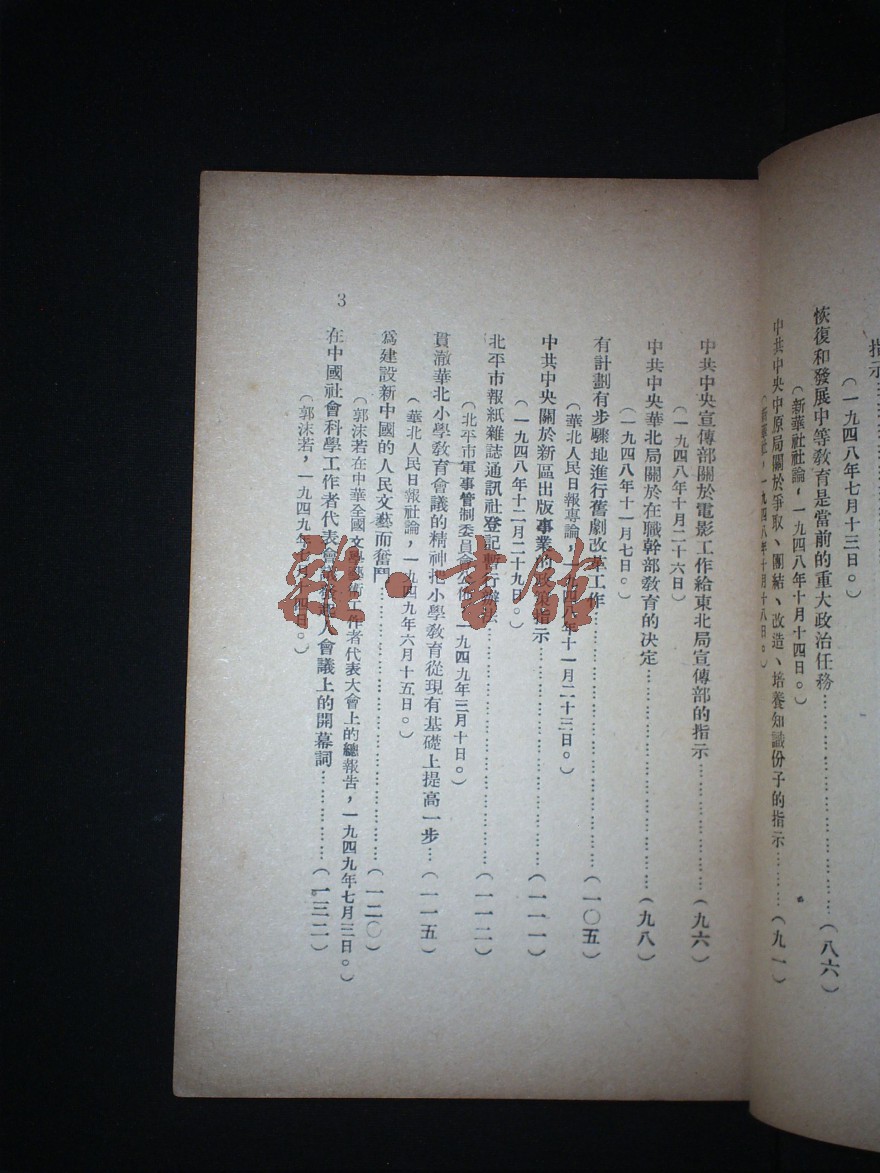 指示
(一九四八年七月十三日。)
恢復和發展中等敎育是當前的重大政治任務………………(八六)
(新華社社論,一九四八年十月十四日。)
中共中央中原局關於爭取、團結、改造、培養知識份子的指示………(九一)
(新華社,一九四八年十月十八日。)
中共中央宣傳部關於電影工作給東北局宣傳部的指示………………(九六)
(一九四八年十月二十六日)
中共中央華北局關於在職幹部敎育的決定………………………(九八)
(一九四八年十一月七日。)
有計劃有步驟地進行舊劇改革工作…………………………(一〇五)
(華北人民日報專論,一九四八年十一月二十三日。)
中共中央關於新區出版事業的政策指示………………………(一一一)
(一九四八年十二月二十九日。)
北平市報紙雜誌通訊社登記暫行辦法………………………(一一二)
(北平市軍事管制委員會公佈,一九四九年三月十日。)
貫澈華北小學敎育會議的精神把小學敎育從現有基礎上提高一步…(一一五)
(華北人民日報社論,一九四九年六月十五日。)
爲建設新中國的人民文藝而奮鬥…………………………(一二〇)
(郭沫若在中華全國文學藝術工作者代表大會上的總報告,一九四九年七月三日。)
在中國社會科學工作者代表會議發起人會議上的開幕詞…………(一三二)
(郭沫若,一九四九年七月十四日。)
3
雜·書館